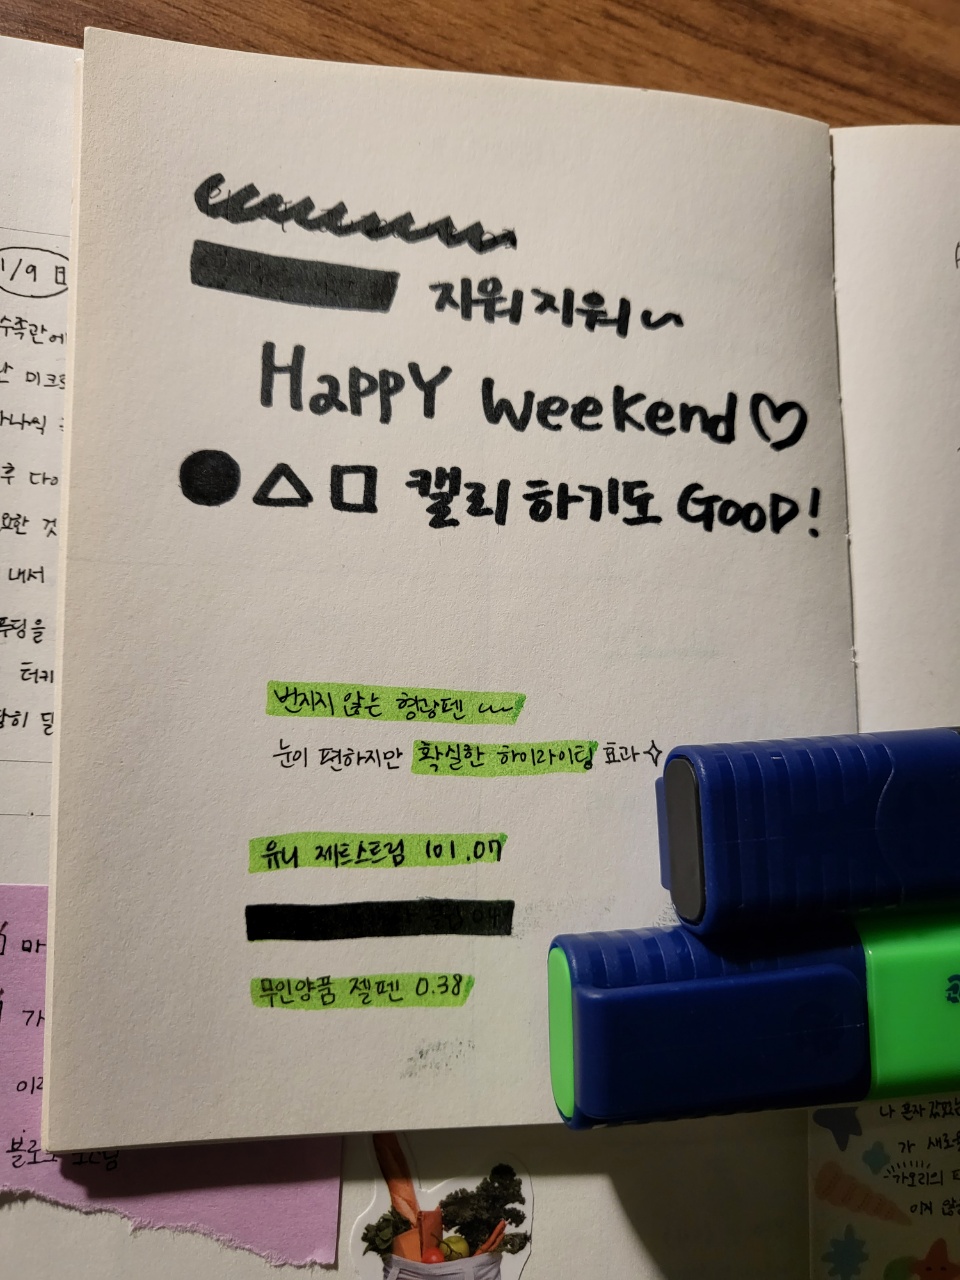 지워지워~
Happy Weekend♡
●△□ 캘리 하기도 GOOD!
번지지 않는 형광펜 ~
눈이 편하지만 확실한 하이라이팅 효과✧
유니 제트스트림 101.07
무인양품 젤펜 0.38
1/9 日
수족관에
미크로
후 다이
요한 것
내서
푸딩을
터키
마
가
나 혼자
가 새로
가오리의
이지 않